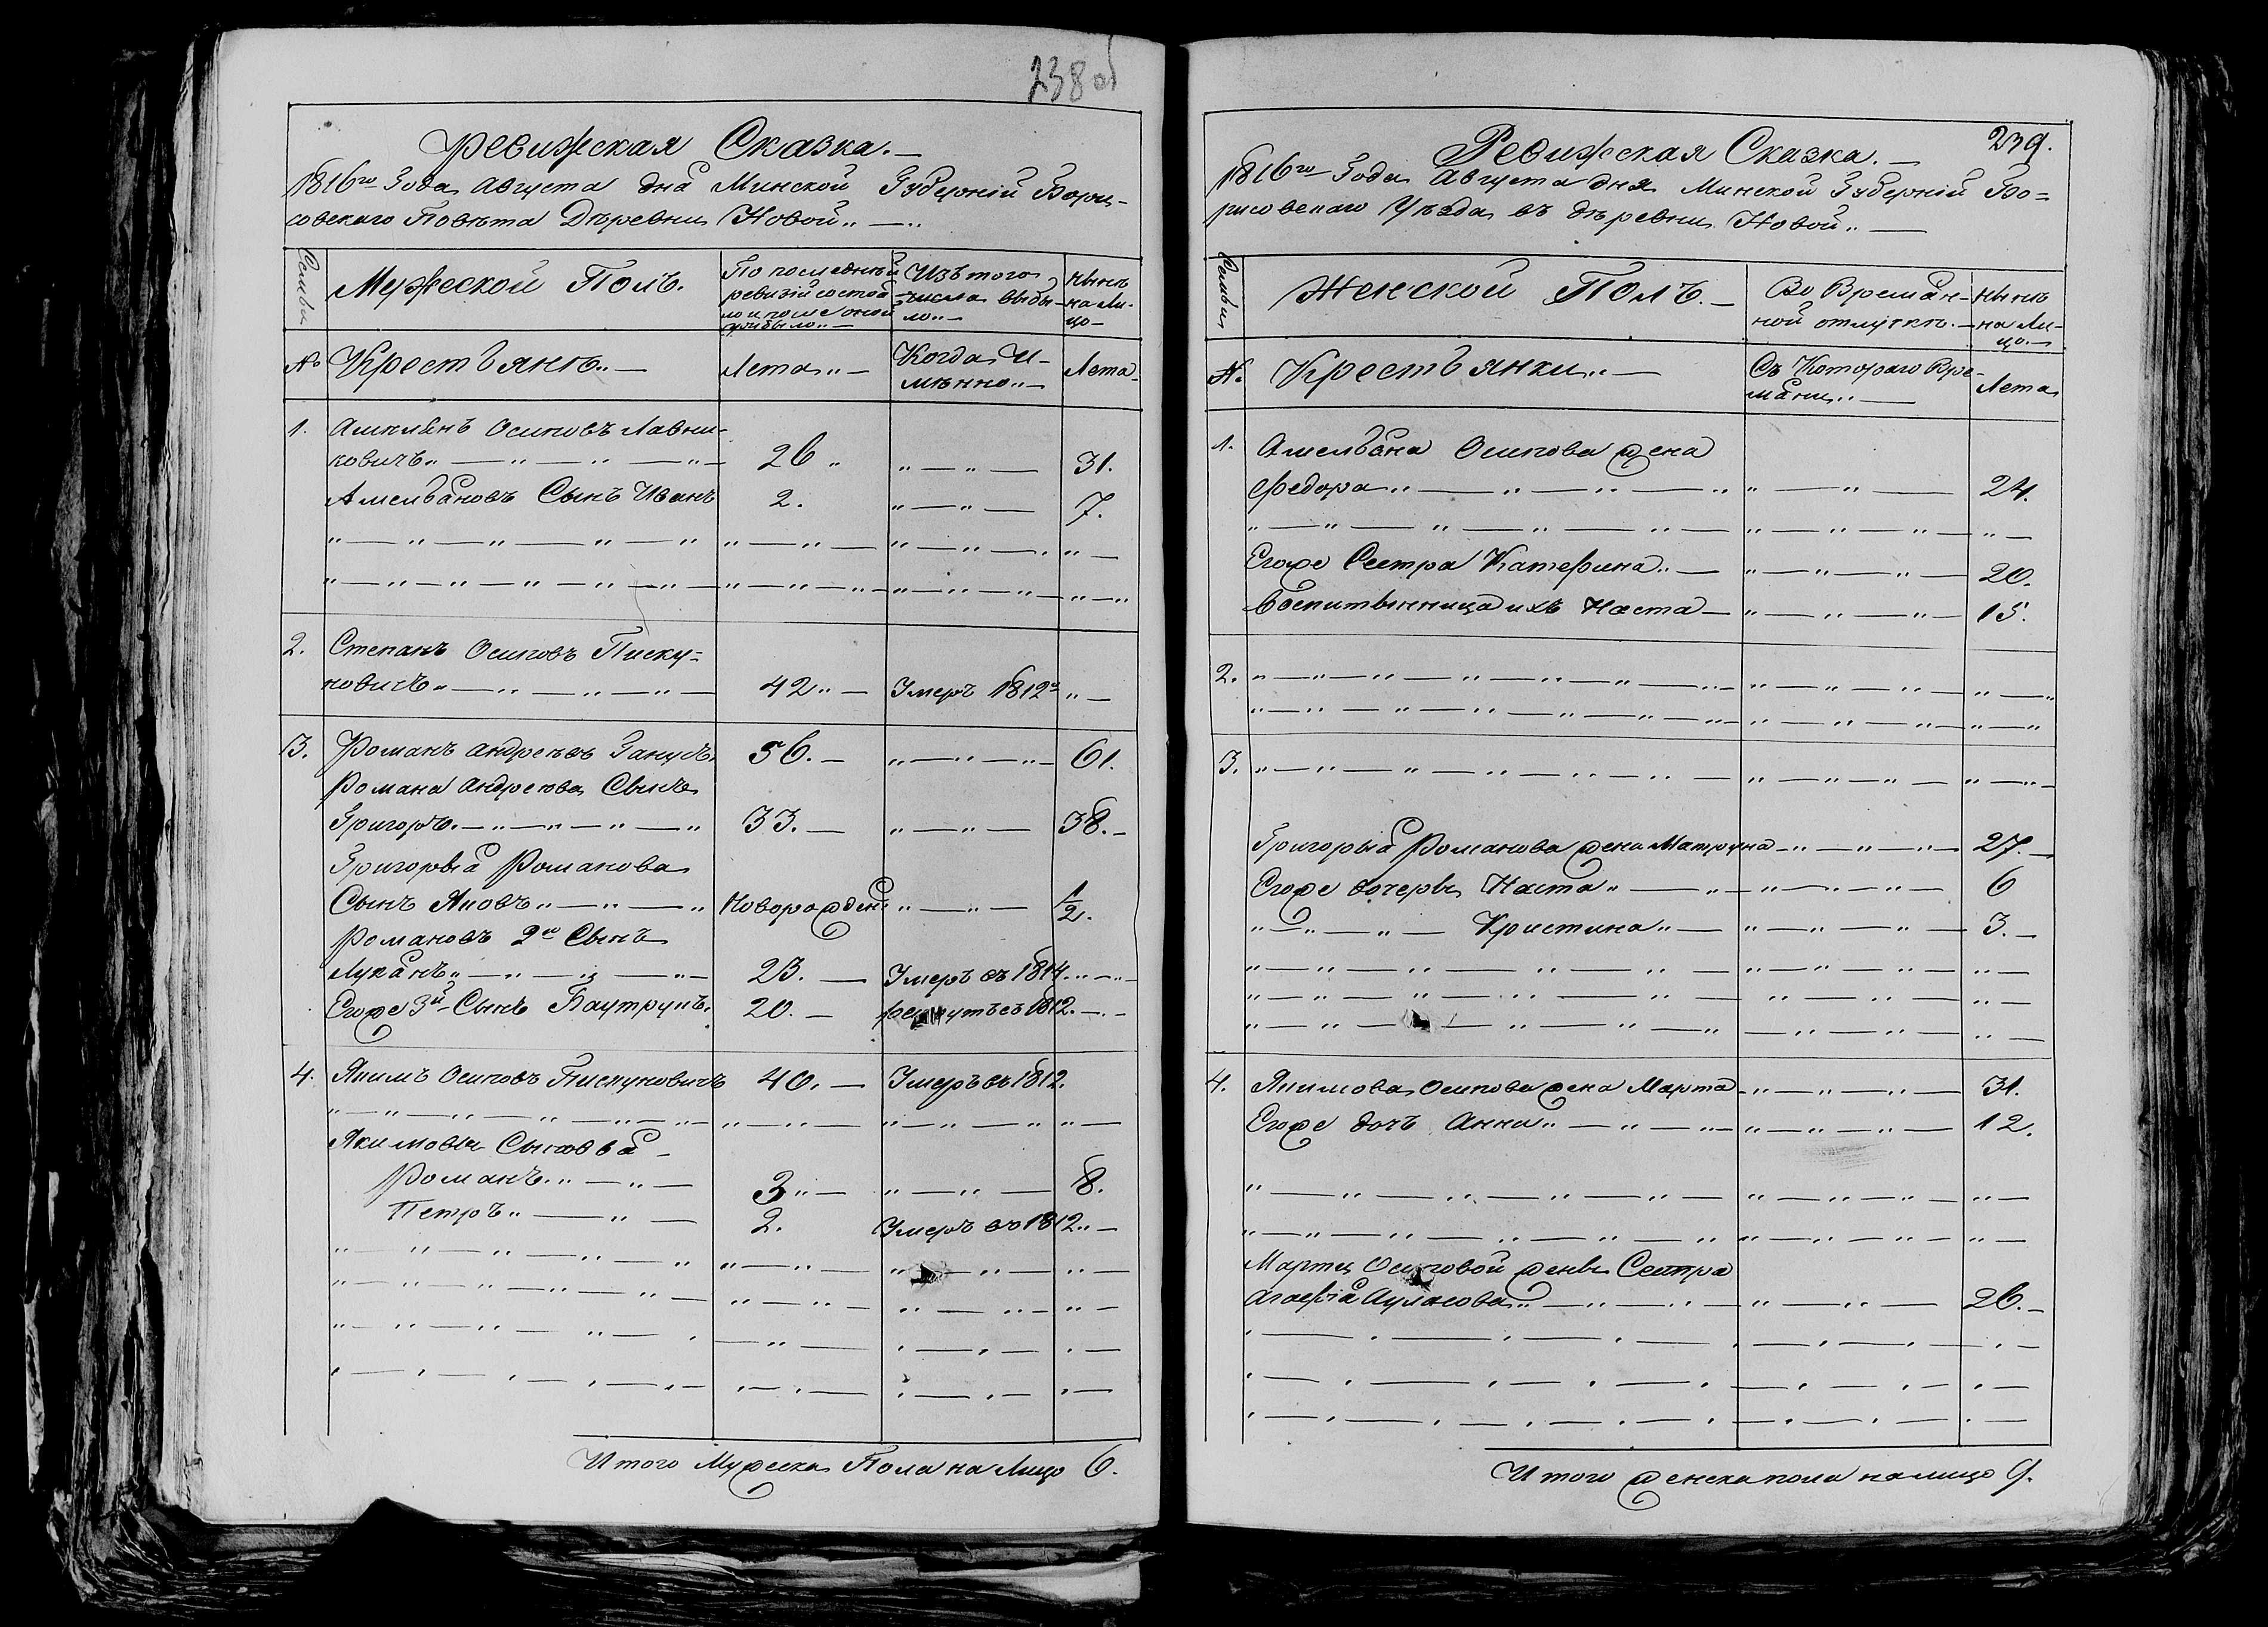 238 об
Ревижская Сказка.—
1816го Года Августа дня Минской Губернiй Бори-
совскаго Повѣта Дѣревни Новой
Семьи
Мужеской Полъ.
По последнѣй
ревизiй состоя
ло и после оной
прибыло
Изъ того
числа выбы-
ло
Нынѣ
на Ли-
цо
№
Крестьянъ
Лета
Когда И-
мѣнно
Лета
1. Амельянъ Осиповъ Лавни-
ковичъ 26 31.
Амельяновъ Сынъ Иванъ 2. 7.
2. Степанъ Осиповъ Писку-
новичъ 42 Умеръ 1812
3. Романъ Андреевъ Ганусъ 56. 61.
Романа Андреева Сынъ
Григоръ. 33. 38.
Григорья Романова
Сынъ Яковъ Новорожден 1/2.
Романовъ 2й Сынъ
Лукянъ 23. Умеръ въ 1814.
Егоже 3й Сынъ Баутрукъ. 20. въ 1812.
4. Якимъ Осиповъ Пискуновичъ 40. Умеръ въ 1812.
Якимовы Сыновья
Романъ. 3 8.
Петръ 2. Умеръ въ 1812
Итого Мужеска Пола на Лицо 6.
239.
Ревижская Сказка.—
1816го Года Августа дня Минской Губернiй Бо=
рисовскаго Уѣзда въ дѣревни Новой
Семьи
Женской Полъ.—
Во Времян-
ной отлучкѣ.
Нынѣ
на Ли-
цо.
№.
Крестьянки
Съ Котораго Вре-
мяни
Лета
1. Амельяна Осипова жена
Федора 24.
Егоже Сестра Катерина 20.
Воспитынница ихъ Наста 15.
2.
3.
Григорья Романова жена Матруна 27.
Егоже дочеръ Наста 6
Кристина 3.
4. Якимова Осипова жена Марта 31.
Егоже дочъ Анна 12.
Марты Осиповой жены Сестра
Агафiя 26.
Итого женска пола налицо 9.